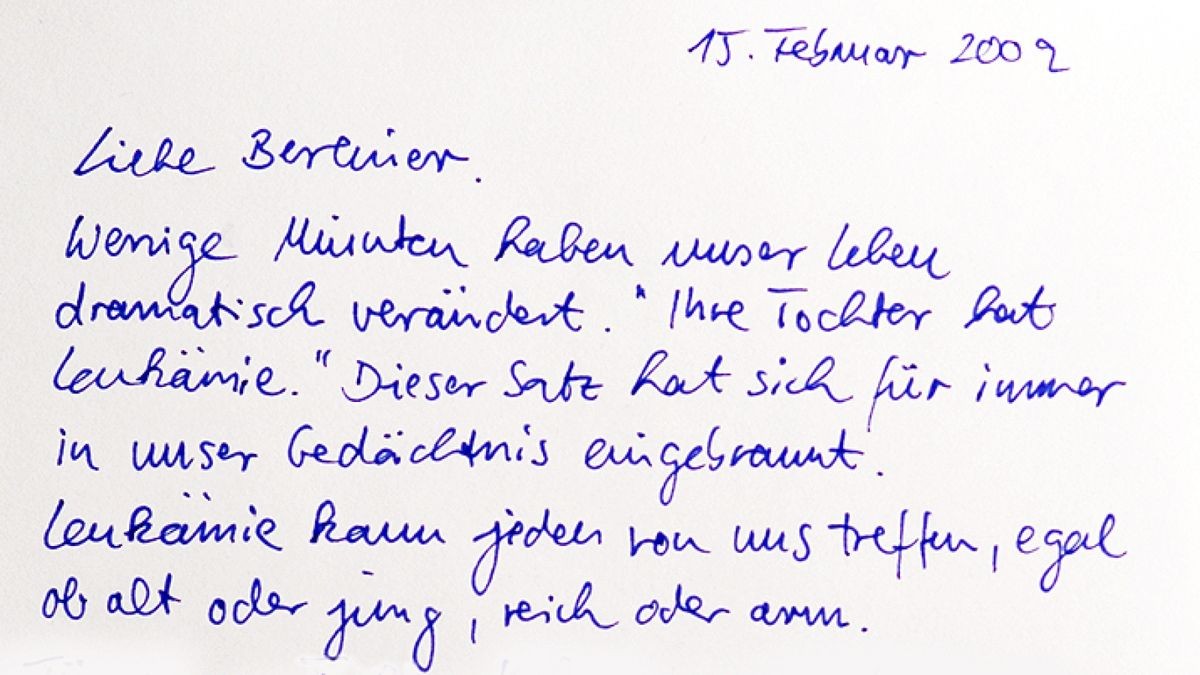 15. Februar 2009
Liebe Berliner.
Wenige Minuten haben unser Leben
dramatisch verändert. "Ihre Tochter hat
Leukämie." Dieser Satz hat sich für immer
in unser Gedächtnis eingebrannt.
Leukämie kann jeden von uns treffen, egal
ob alt oder jung, reich oder arm.